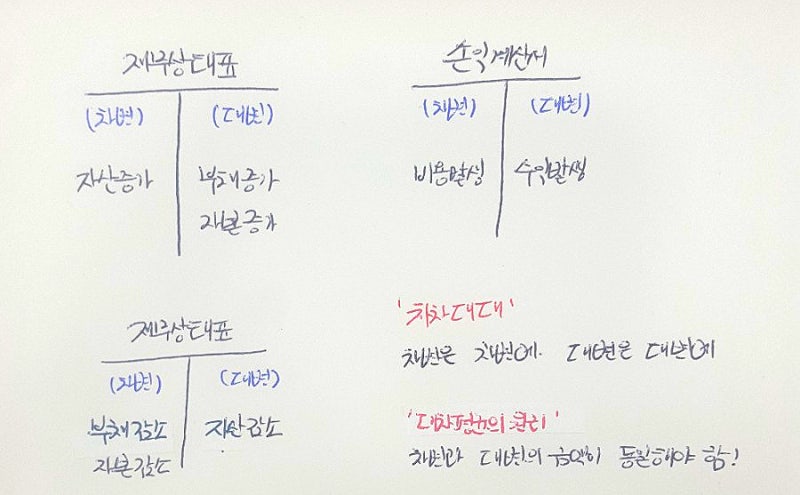 재무상태표
(차변) (대변)
자산증가 부채증가
자본증가
손익계산서
(차변) (대변)
비용발생 수익발생
재무상태표
(차변) (대변)
부채감소 자산감소
자본감소
'차차대대'
차변은 차변에. 대변은 대변에
'대차평균의 원리'
차변과 대변의 금액이 동일해야 함!